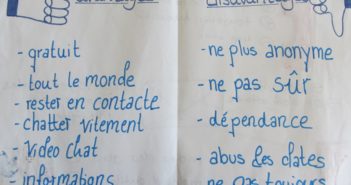 - gratuit
- tout le monde
- rester en contacte
- chatter vitement
- Video chat
- informations
- ne plus anonyme
- ne pas sûr
- dépendance
- abus des dates
ne pas toujours